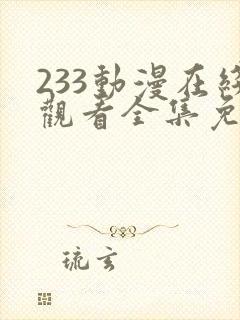 233動漫在
觀看全集免
琉玄